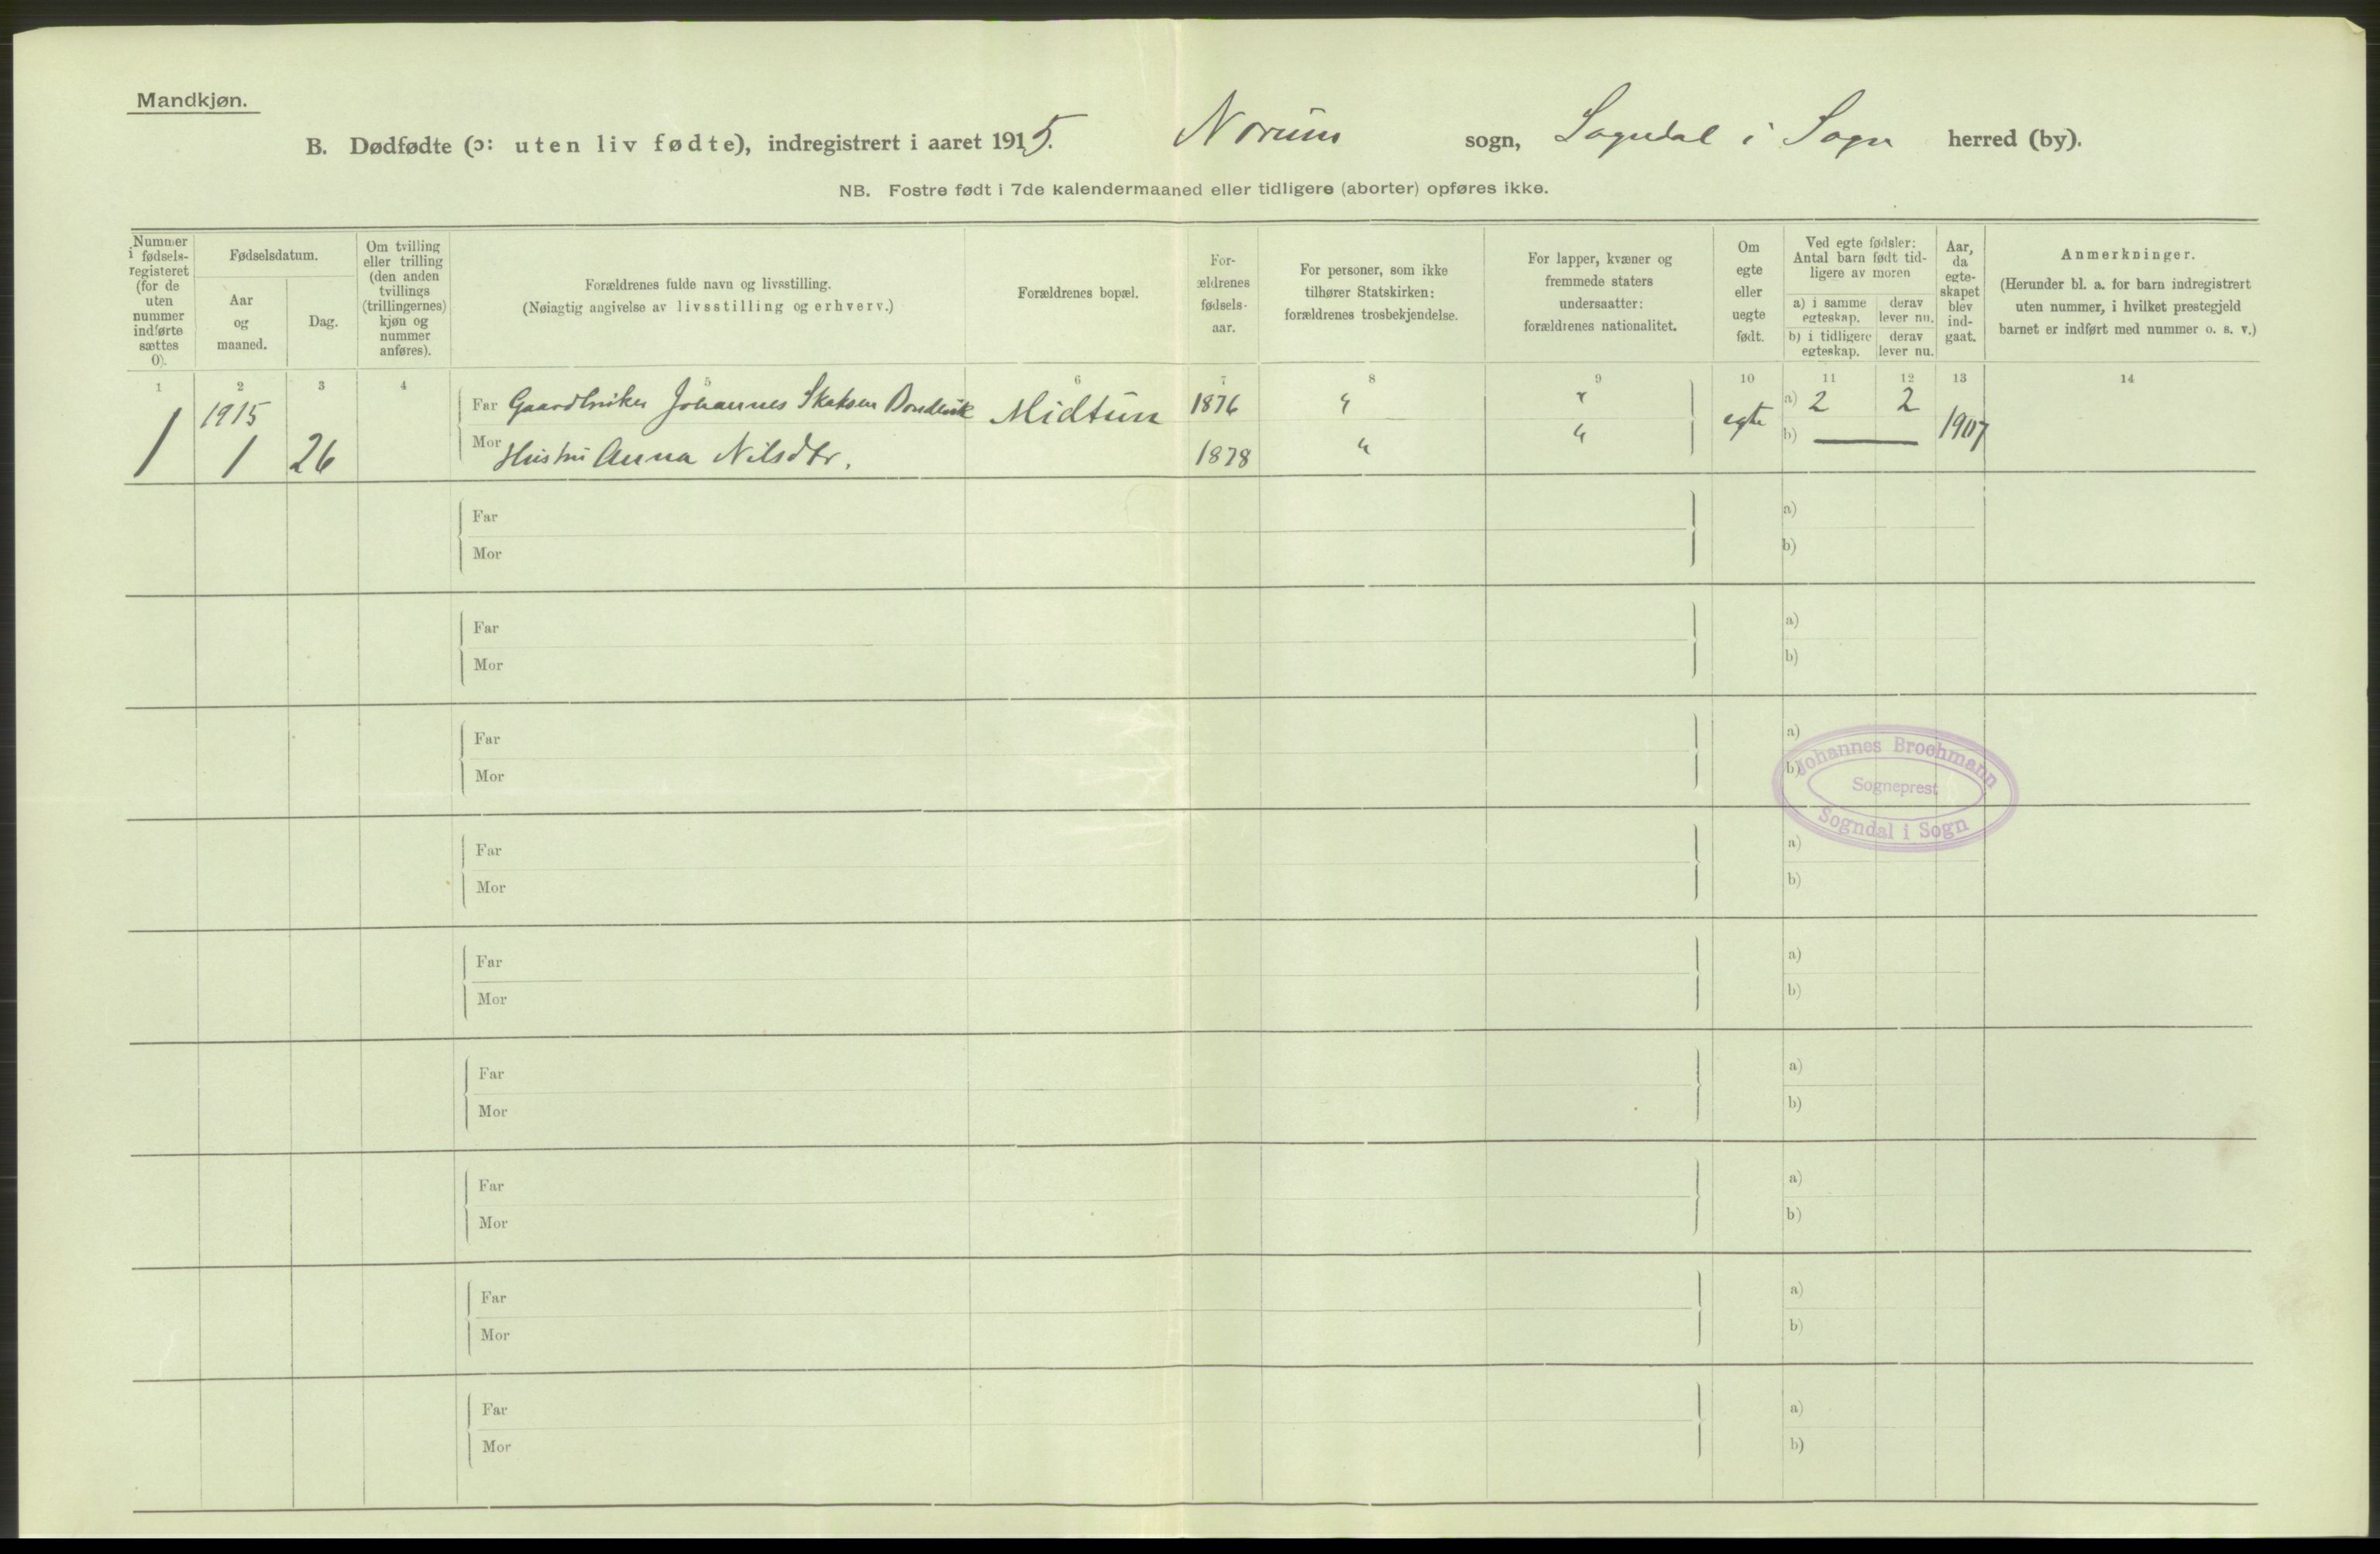 Mandkjøn.
B. Dødfødte (ɔ: uten liv fødte), indregistrert i aaret 1915. Norum sogn, Sogndal i Sogn herred (by).
NB. Fostre født i 7de kalendermaaned eller tidligere (aborter) opføres ikke.
Nummer
i fødsels-
registeret
(for de
uten
nummer
indførte
sættes
0).
Fødselsdatum.
Aar
og
maaned.
Dag.
Om tvilling
eller trilling
(den anden
tvillings
(trillingernes)
kjøn og
nummer
anføres).
Forældrenes fulde navn og livsstilling.
(Nøiagtig angivelse av livsstilling og erhverv.)
Forældrenes bopæl.
For-
ældrenes
fødsels-
aar.
For personer, som ikke
tilhører Statskirken:
forældrenes trosbekjendelse.
For lapper, kvæner og
fremmede staters
undersaatter:
forældrenes nationalitet.
Om
egte
eller
uegte
født.
Ved egte fødsler:
Antal barn født tid-
ligere av moren
a) i samme
egteskap.
derav
lever nu.
b) i tidligere
egteskap.
derav
lever nu.
Aar,
da
egte-
skapet
blev
ind-
gaat.
Anmerkninger.
(Herunder bl. a. for barn indregistrert
uten nummer, i hvilket prestegjeld
barnet er indført med nummer o. s. v.)
1 2 3 4 5 6 7 8 9 10 11 12 13 14
1915
Far Gaardbruker Johannes Skaksen Midtun 1876 " " egte a) 2 2 1907
1 1 26
Mor Hustru Anna Nilsdtr. 1878 " " b) —
Far a)
Mor b)
Far a)
Mor b)
Far a)
Mor b)
Johannes Brochmann
Sogneprest
Sogndal i Sogn
Far a)
Mor b)
Far a)
Mor b)
Far a)
Mor b)
Far a)
Mor b)
Far a)
Mor b)
Far a)
Mor b)